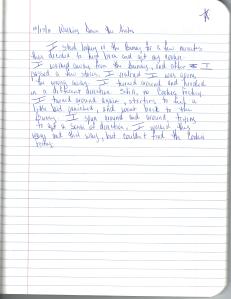 Walking Down the Halls
I stood looking at the bunny for a few minutes
then decided to head back and get my locker
I walked away from the bunny, and after I
passed a few stairs, I realized I was going
the wrong way. I turned around and headed
in a different direction. Still, no locker
I turned around again, starting to feel a
little bit panicked, and went back to the
bunny. I spun around and around, trying
to get a sense of direction. I walked this
way and that way, but couldn't find the